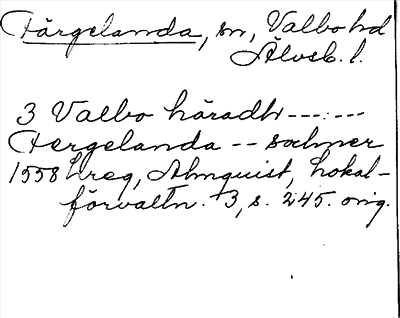 Färgelanda, sn, Valbo hd
Älvsb. l.
3 Valbo häradh - - - : - - -
Fergelanda - - sochner
1558 Lreg, Almquist, Lokal-
förvaltn. 3, s. 245. orig.